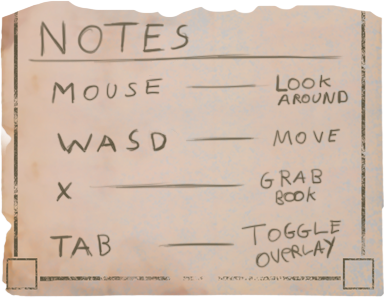 NOTES
MOUSE — LOOK AROUND
WASD — MOVE
X — GRAB BOOK
TAB — TOGGLE OVERLAY